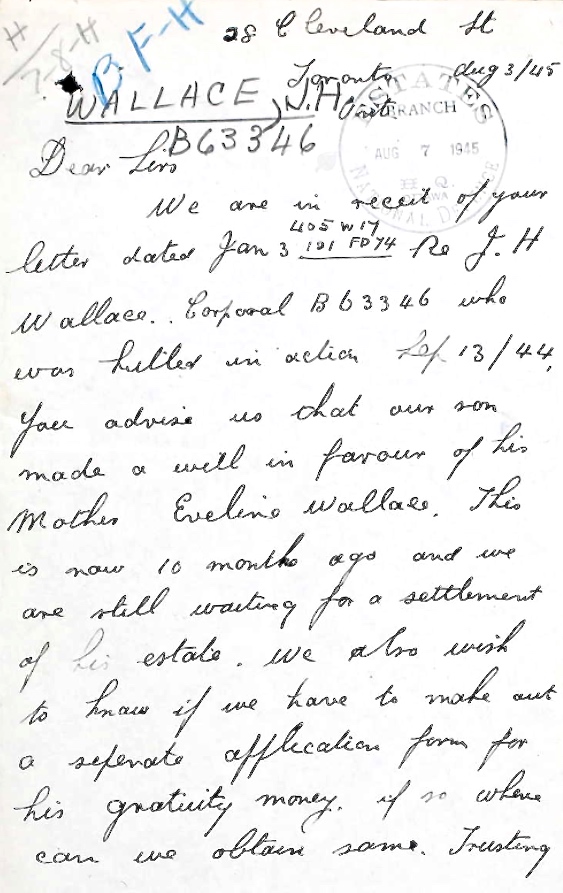 28 Cleveland St
H/7-8-H
B F-H
Toronto Aug 3/45
Ont
WALLACE, J.H.
B63346
ESTATES BRANCH
AUG 7 1945
H.Q.
NATIONAL DEFENCE
Dear Sirs
We are in receit of your
405 W 17
letter dated Jan 3 101 FD 74 Re J. H
Wallace. Corporal B 63346 who
was killed in action Sep 13/44.
You advise us that our son
made a will in favour of his
Mother Eveline Wallace. This
is now 10 months ago and we
are still waiting for a settlement
of his estate. We also wish
to know if we have to make out
a seperate application form for
his gratuity money. if so where
can we obtain same. Trusting